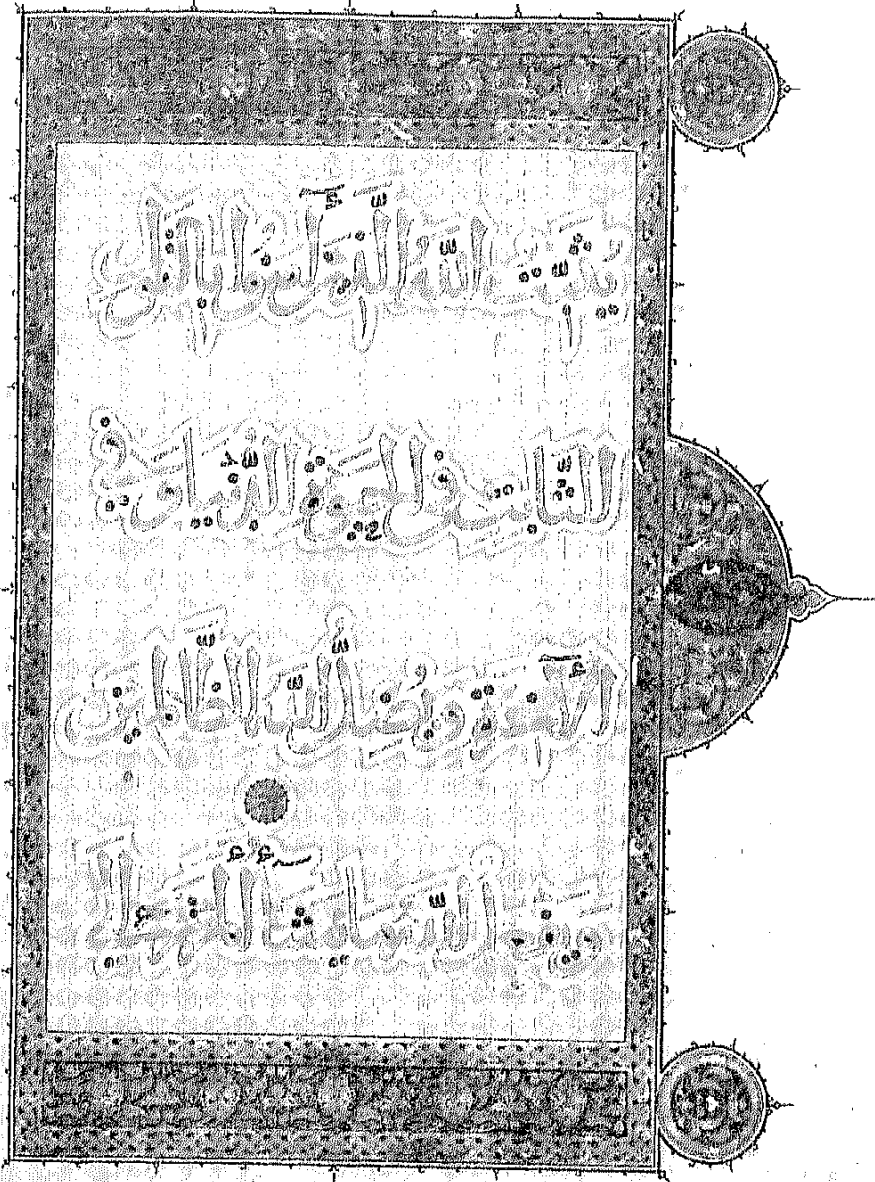 يُثَبِّتُ اللَّهُ الَّذِينَ آمَنُوا بِالْقَوْلِ
الثَّابِتِ فِي الْحَيَوةِ الدُّنْيَا وَفِي
الْآخِرَةِ وَيُضِلُّ اللَّهُ الظَّالِمِينَ
وَيَفْعَلُ اللَّهُ مَا يَشَاءُ أَلَمْ